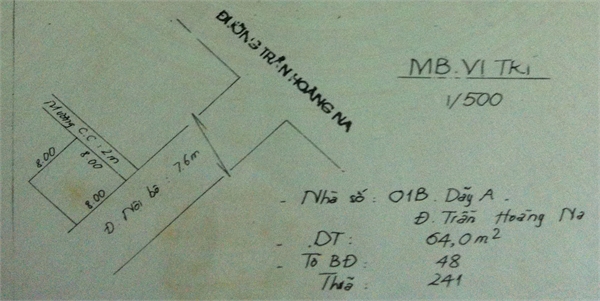 ĐƯỜNG TRẦN HOÀNG NA
MB. VỊ TRÍ
1/500
Mương C.C : 2m
8.00
8.00
8.00
Đ. Nội bộ : 7.6m
- Nhà số : 01B. Dãy A.
Đ. Trần Hoàng Na
- DT : 64,0m²
- Tờ BĐ : 48
Thửa : 241